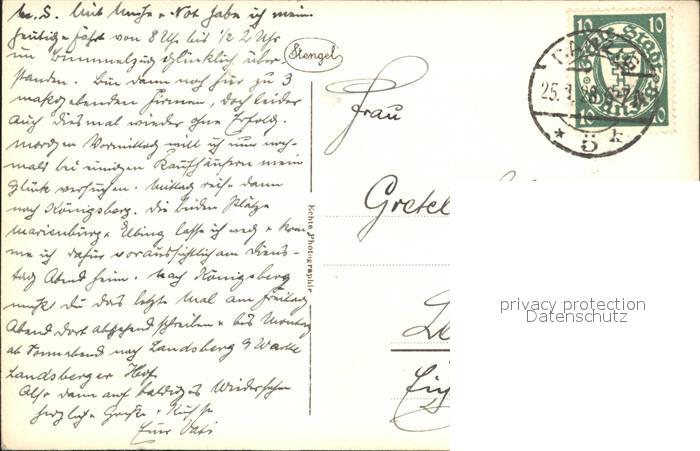 M. S. Mit Mühe + Not habe ich meine
heutige Fahrt von 8 Uhr bis 1/2 2 Uhr
im Bummelzug glücklich über-
standen. Bin dann noch hier zu 3
maßgebenden Firmen, doch leider
auch diesmal wieder ohne Erfolg.
Morgen Vormittag will ich nun noch-
mals bei einigen Kaufhäusern mein
Glück versuchen. Mittag reise dann
nach Königsberg. Die beiden Plätze
Marienburg + Elbing lasse ich weg + kom-
me ich dafür voraussichtlich am Diens-
tag Abend heim. Nach Königsberg
mußt du das letzte Mal am Freitag
Abend dort abgehend schreiben + bis Montag
ab Sonnabend nach Landsberg a/ Warthe
Landsberger Hof.
Also dann auf baldiges Wiedersehn
herzliche Grüße + Küsse
Euer Vati
Stengel
Echte Photographie
Frau
Gretel
10 10
10
25.1.28
* 5 k
privacy protection
Datenschutz